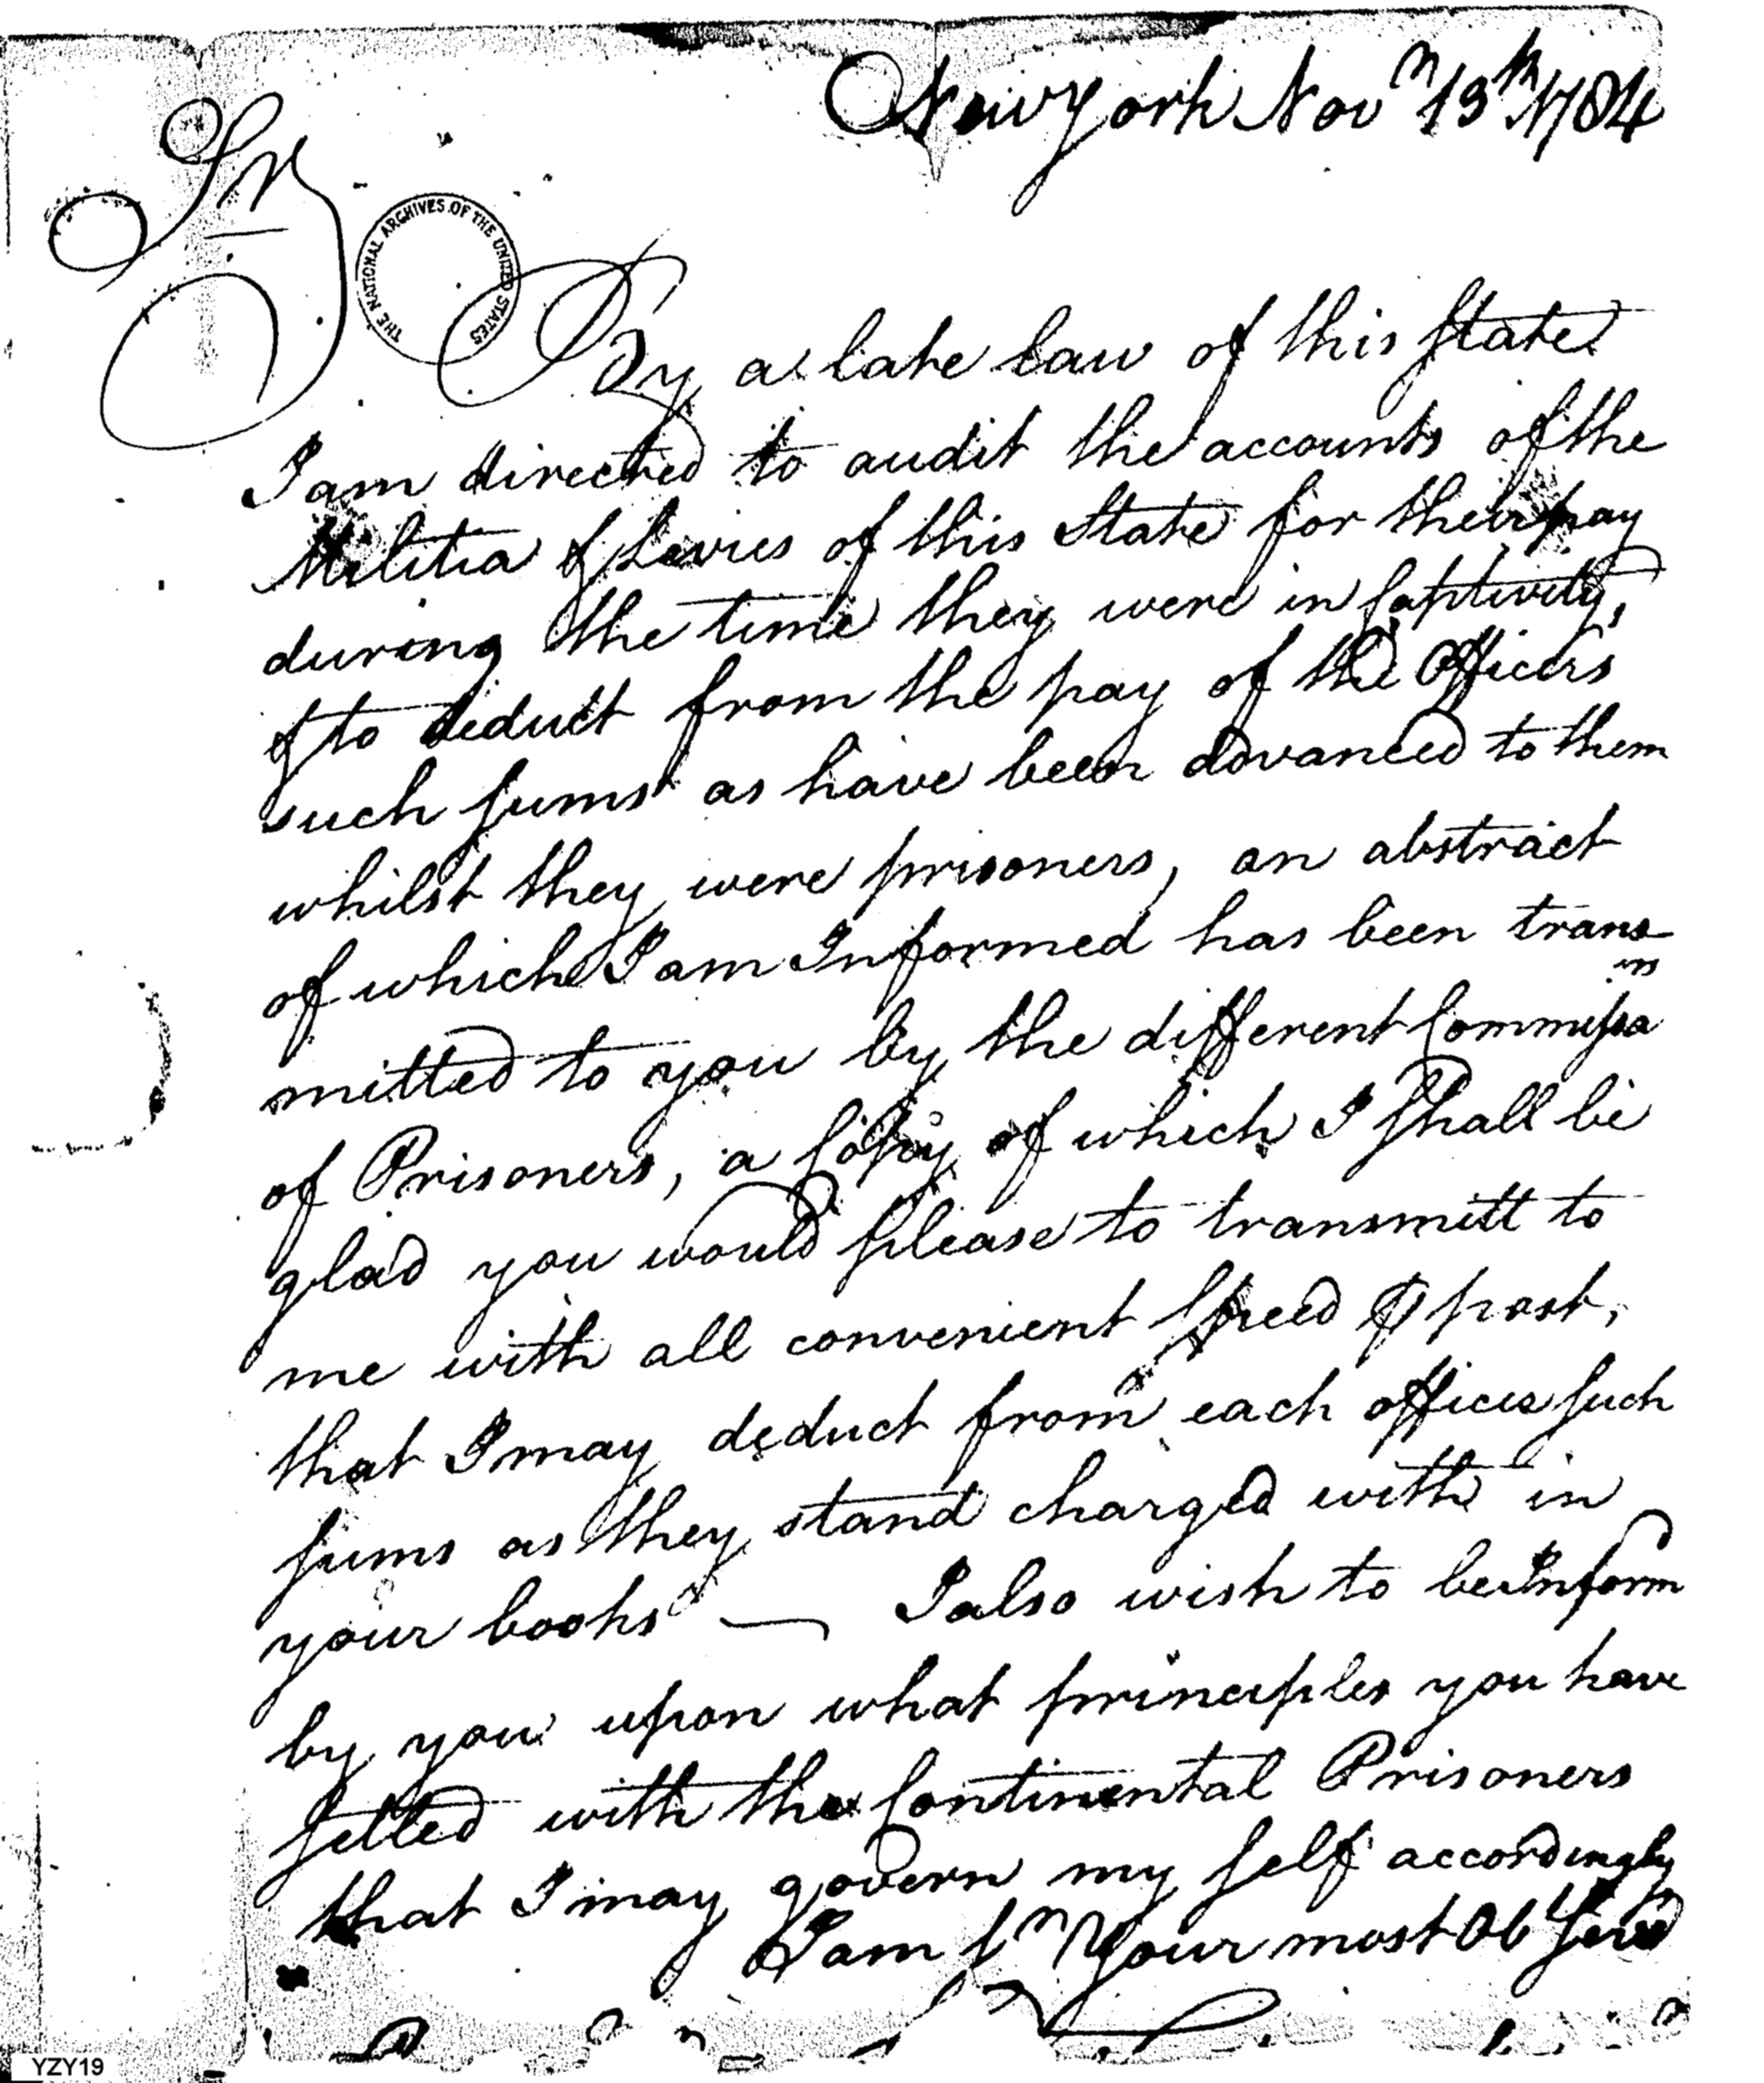 New York Novr 13th 1784
Sir
THE NATIONAL ARCHIVES OF THE UNITED STATES
By a late law of this State
I am directed to audit the accounts of the
Militia & Levies of this State for their pay
during the time they were in Captivity,
& to deduct from the pay of the Officers
such sums as have been advanced to them
whilst they were prisoners, an abstract
of which I am Informed has been trans
mitted to you by the different Commissa
of Prisoners, a Copy of which I shall be
glad you would please to transmitt to
me with all convenient speed ⅌ post,
that I may deduct from each officer such
sums as they stand charged with in
your books — I also wish to be Inform
by you upon what principles you have
setled with the Continental Prisoners
that I may govern my self accordingly
I am Sr Your most Ob Serv
YZY19